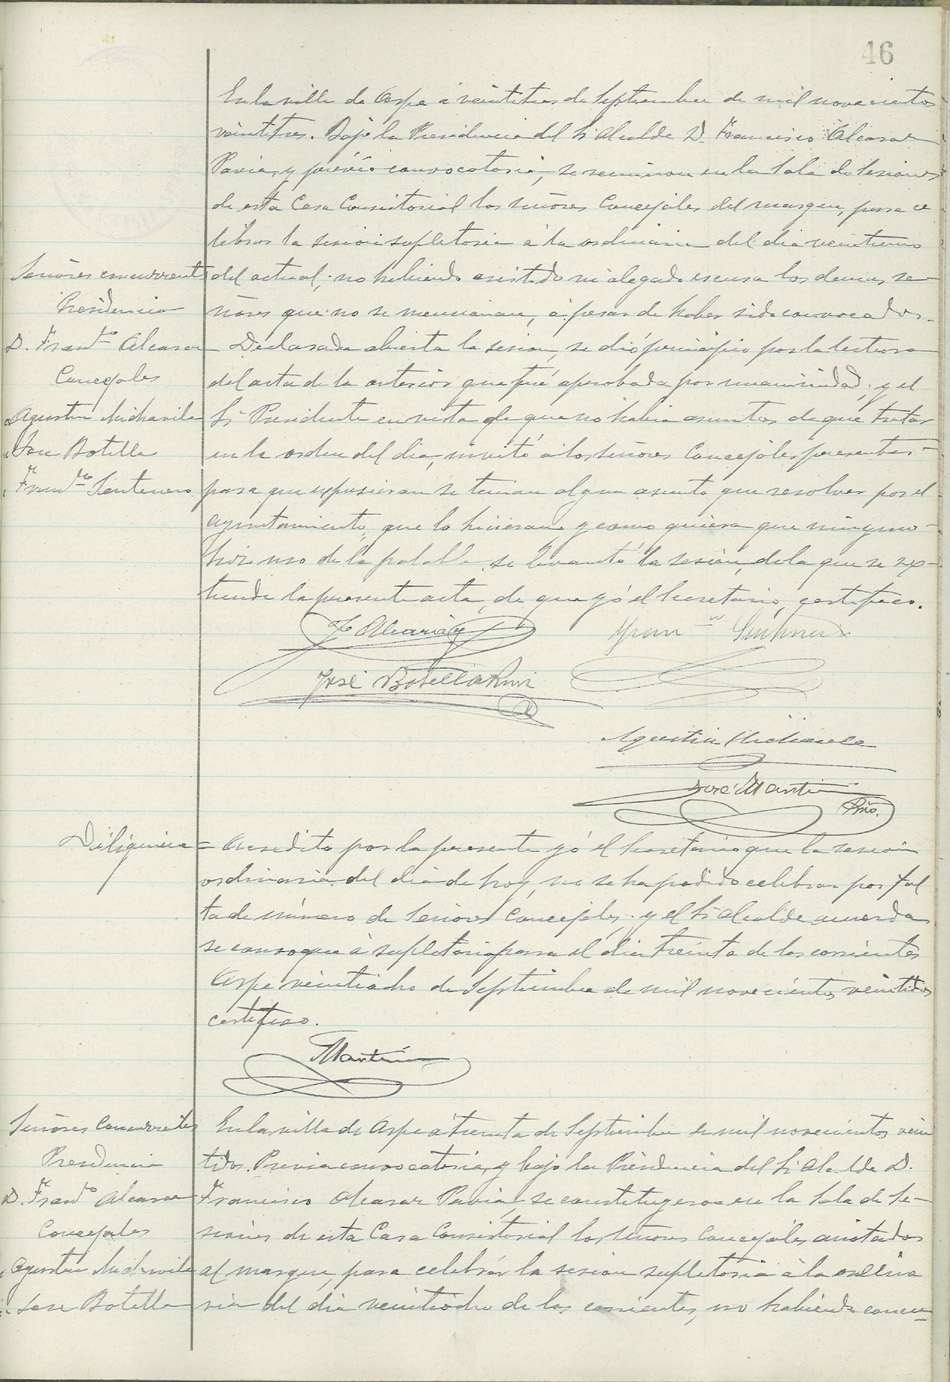 46
En la villa de Aspe á veintitres de Septiembre de mil novecientos
veintitres. Bajo la Presidencia del Sr Alcalde D. Francisco Alcaraz
Pavia, y previa convocatoria, se reunieron en la Sala de Sesiones
de esta Casa Consistorial los señores Concejales del margen, para ce
lebrar la sesión supletoria á la ordinaria del dia veintiuno
Señores concurrentes
del actual; no habiendo asistido ni alegado escusa los demas se
Presidencia
ñores que no se mencionan, á pesar de haber sido convocados.
D. Franco Alcaraz
Declarada abierta la sesion, se dió principio por la lectura
Concejales
del acta de la anterior que fué aprobada por unanimidad; y el
Agustin Michavila
Sr Presidente en vista de que no habia asuntos de que tratar
Jose Botella
en la orden del dia, invitó á los señores Concejales presentes
Franco Santonero
para que expusieran se tenian algun asunto que resolver por el
Ayuntamiento, que lo hicieran y como quiera que ninguno
hizo uso de la palabra se levantó la sesión, de la que se ex-
tiende la presente acta, de que yó el Secretario, certifico.
F. Alcaraz
José Botella Ruiz
Agustin Michavila
José Martin
Srio.
Diligencia = Acredito por la presente yó el Secretario que la sesion
ordinaria del dia de hoy no se ha podido celebrar por fal
ta de número de Señores Concejales; y el Sr Alcalde acuerda
se convoque á supletoria para el dia treinta de los corrientes
Aspe veintiocho de Septiembre de mil novecientos veintidos
certifico.
Martin
Señores Concurrentes
En la villa de Aspe á treinta de Septiembre de mil novecientos vein
Presidencia
tidos. Previa convocatoria, y bajo la Presidencia del Sr Alcalde D.
D. Franco Alcaraz
Francisco Alcaraz Pavia, se constituyeron en la Sala de Se-
Concejales
siones de esta Casa Consistorial los señores Concejales anotados
Agustin Michavila
al margen, para celebrar la sesion supletoria á la ordina
Jose Botella
ria del dia veintiocho de los corrientes, no habiendo concu-